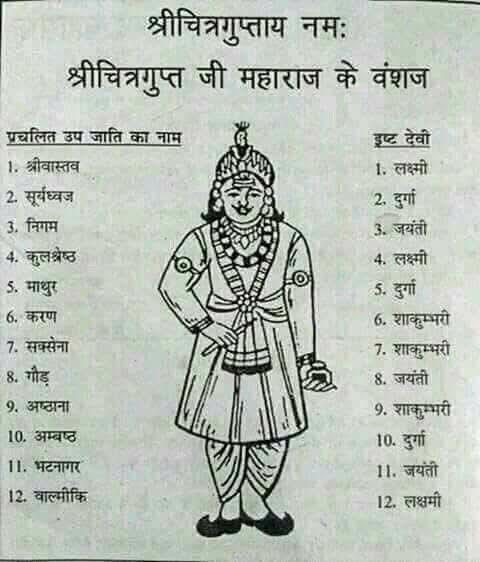 श्रीचित्रगुप्ताय नम:
श्रीचित्रगुप्त जी महाराज के वंशज
प्रचलित उप जाति का नाम
1. श्रीवास्तव
2. सूर्यध्वज
3. निगम
4. कुलश्रेष्ठ
5. माथुर
6. करण
7. सक्सेना
8. गौड़
9. अष्ठाना
10. अम्बष्ठ
11. भटनागर
12. वाल्मीकि
इष्ट देवी
1. लक्ष्मी
2. दुर्गा
3. जयंती
4. लक्ष्मी
5. दुर्गा
6. शाकुम्भरी
7. शाकुम्भरी
8. जयंती
9. शाकुम्भरी
10. दुर्गा
11. जयंती
12. लक्षमी